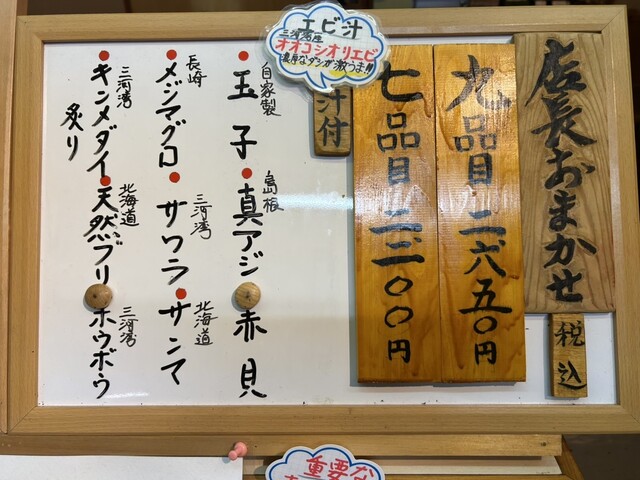 店長おまかせ
税込
九品目 二六五〇円
七品目 二二〇〇円
汁付
エビ汁
三河湾産
オオコシオリエビ
濃厚なダシが激うま!!
自家製
玉子
島根
真アジ
赤貝
長崎
メジマグロ
三河湾
サワラ
北海道
サンマ
三河湾
キンメダイ
炙り
北海道
天然ブリ
三河湾
ホウボウ
重要な